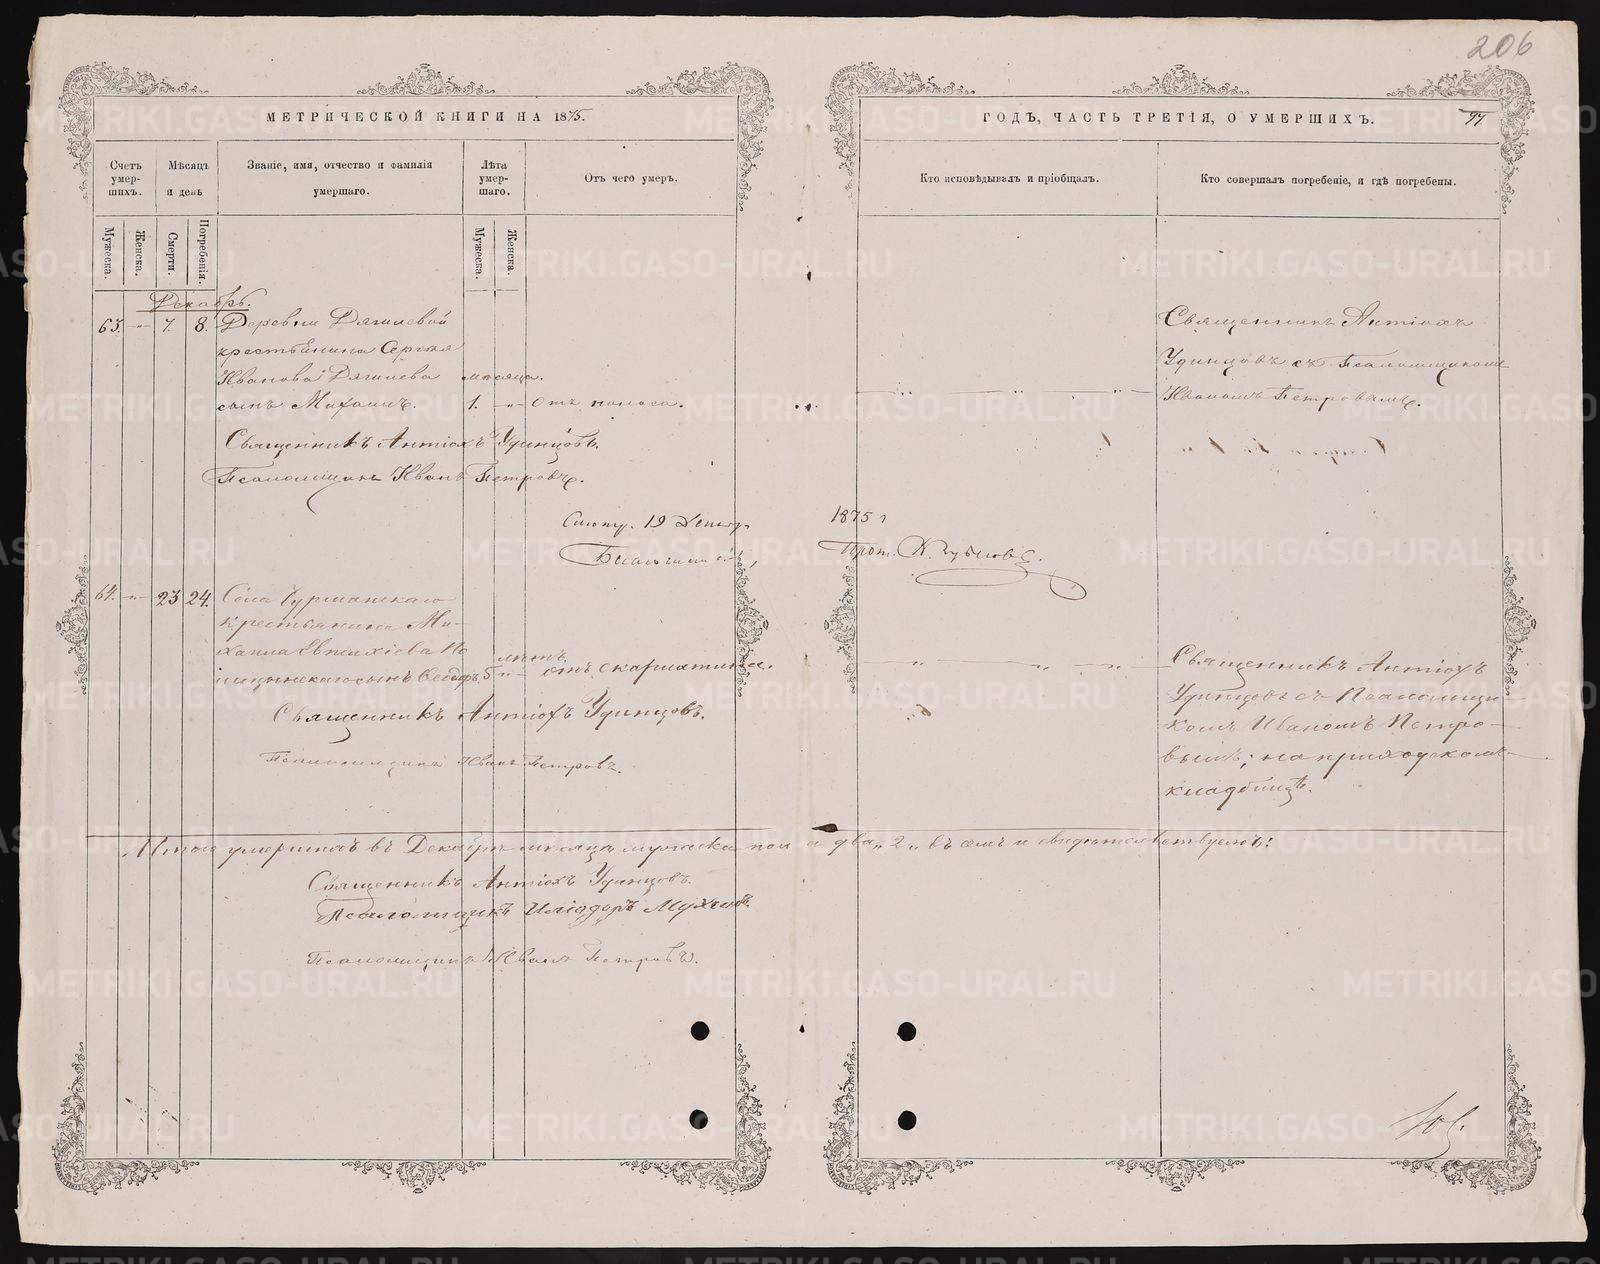 206
МЕТРИЧЕСКОЙ КНИГИ НА 1875.
ГОДЪ, ЧАСТЬ ТРЕТІЯ, О УМЕРШИХЪ.
97
Счетъ умер-шихъ.
Мѣсяцъ и день
Званіе, имя, отчество и фамилія умершаго.
Лѣта умер-шаго.
Отъ чего умеръ.
Кто исповѣдывалъ и пріобщалъ.
Кто совершалъ погребеніе, и гдѣ погребены.
Мужеска.
Женска.
Смерти.
Погребенія.
Мужеска.
Женска.
Декабрь.
63. -"- 7. 8. Деревни Дягилевой
крестьянина Сергѣя
Иванова Дягилева мѣсяца.
сынъ Михаилъ. 1. -"- отъ поноса.
Священникъ Антіохъ
Удинцовъ съ Псаломщикомъ
Иваномъ Петровымъ.
Священникъ Антіохъ Удинцовъ.
Псаломщикъ Иванъ Петровъ.
19 Декабр. 1875 г
Благочинный, Прот.
64. -"- 23 24. Села
крестьянина Ми-
хаила Евтихіева
сынъ Ѳедоръ. лѣтъ 5 -"- отъ скарлатины.
Священникъ Антіохъ
Удинцовъ съ Псаломщи
комъ Иваномъ Петро-
вымъ; на приходскомъ
кладбищѣ.
Священникъ Антіохъ Удинцовъ.
Псаломщикъ Иванъ Петровъ.
Итого умершихъ въ Декабрѣ мѣсяцѣ мужеска пола два, 2, въ чемъ и свидѣтельствуемъ:
Священникъ Антіохъ Удинцовъ.
Псаломщикъ Иліодоръ Мухинъ.
Псаломщикъ Иванъ Петровъ.
METRIKI.GASO-URAL.RU